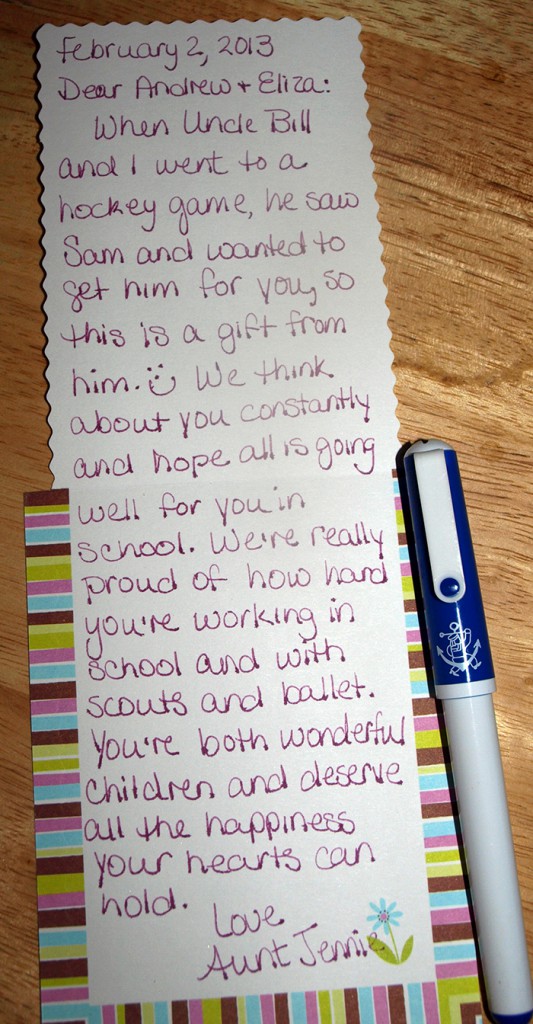 February 2, 2013
Dear Andrew + Eliza:
When Uncle Bill
and I went to a
hockey game, he saw
Sam and wanted to
get him for you, so
this is a gift from
him. We think
about you constantly
and hope all is going
well for you in
school. We're really
proud of how hard
you're working in
school and with
scouts and ballet.
You're both wonderful
children and deserve
all the happiness
your hearts can
hold.
Love
Aunt Jennie